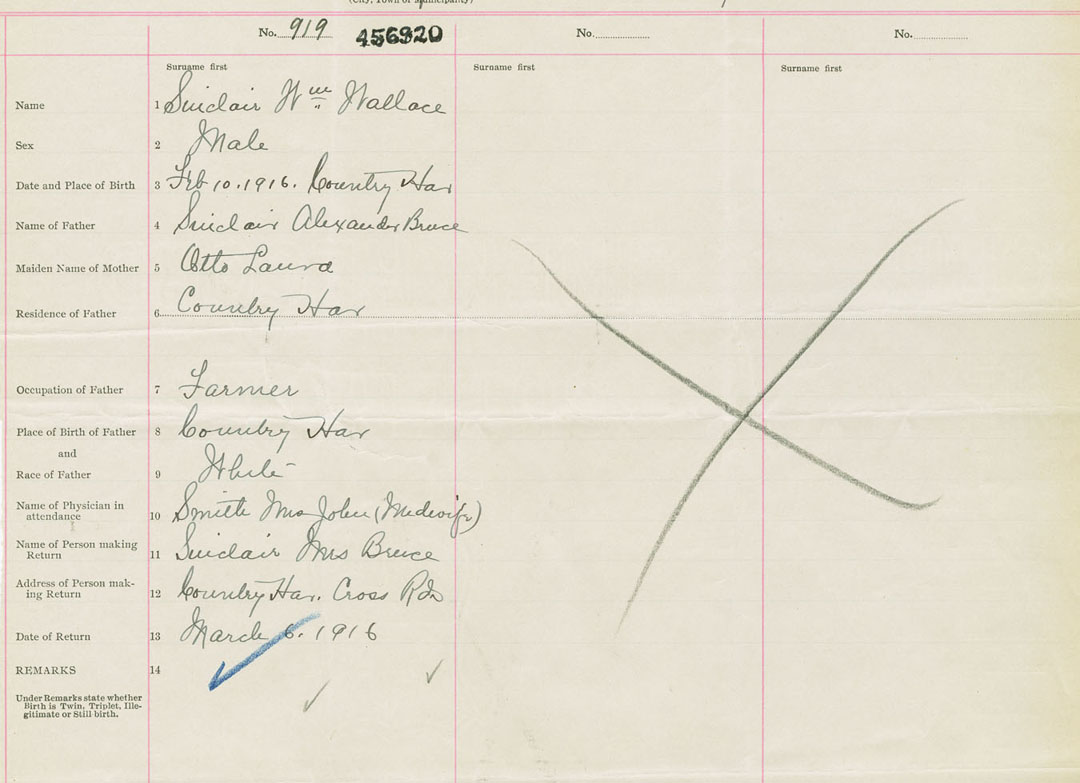 (City, Town or Municipality)
No. 919 456920 No. No.
Surname first Surname first Surname first
Name 1 Sinclair Wm Wallace
Sex 2 Male
Date and Place of Birth 3 Feb 10. 1916. Country Har
Name of Father 4 Sinclair Alexander Bruce
Maiden Name of Mother 5 Otto Laura
Residence of Father 6 Country Har
Occupation of Father 7 Farmer
Place of Birth of Father 8 Country Har
and
Race of Father 9 White
Name of Physician in
attendance 10 Smith Mrs John (Midwife)
Name of Person making
Return 11 Sinclair Mrs Bruce
Address of Person mak-
ing Return 12 Country Har. Cross Rds
Date of Return 13 March 6. 1916
REMARKS 14
Under Remarks state whether
Birth is Twin, Triplet, Ille-
gitimate or Still birth.